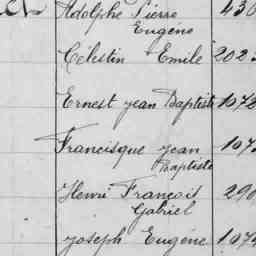 Adolphe Pierre 430
Eugène
Célestin Emile 202
Ernest Jean Baptiste 1072
Francisque Jean 107
Baptiste
Henri François 290
Gabriel
Joseph Eugène 107